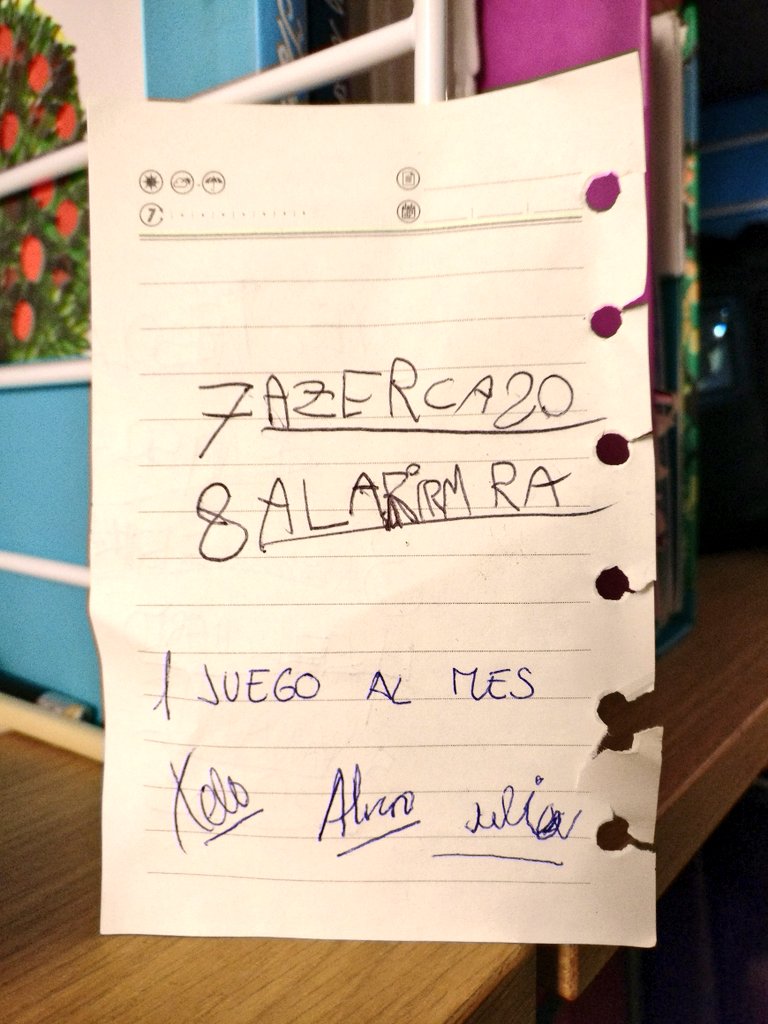 7 AZERCA20
8 ALARIRM RA
1 JUEGO AL MES
Xelo Alvaro Julia